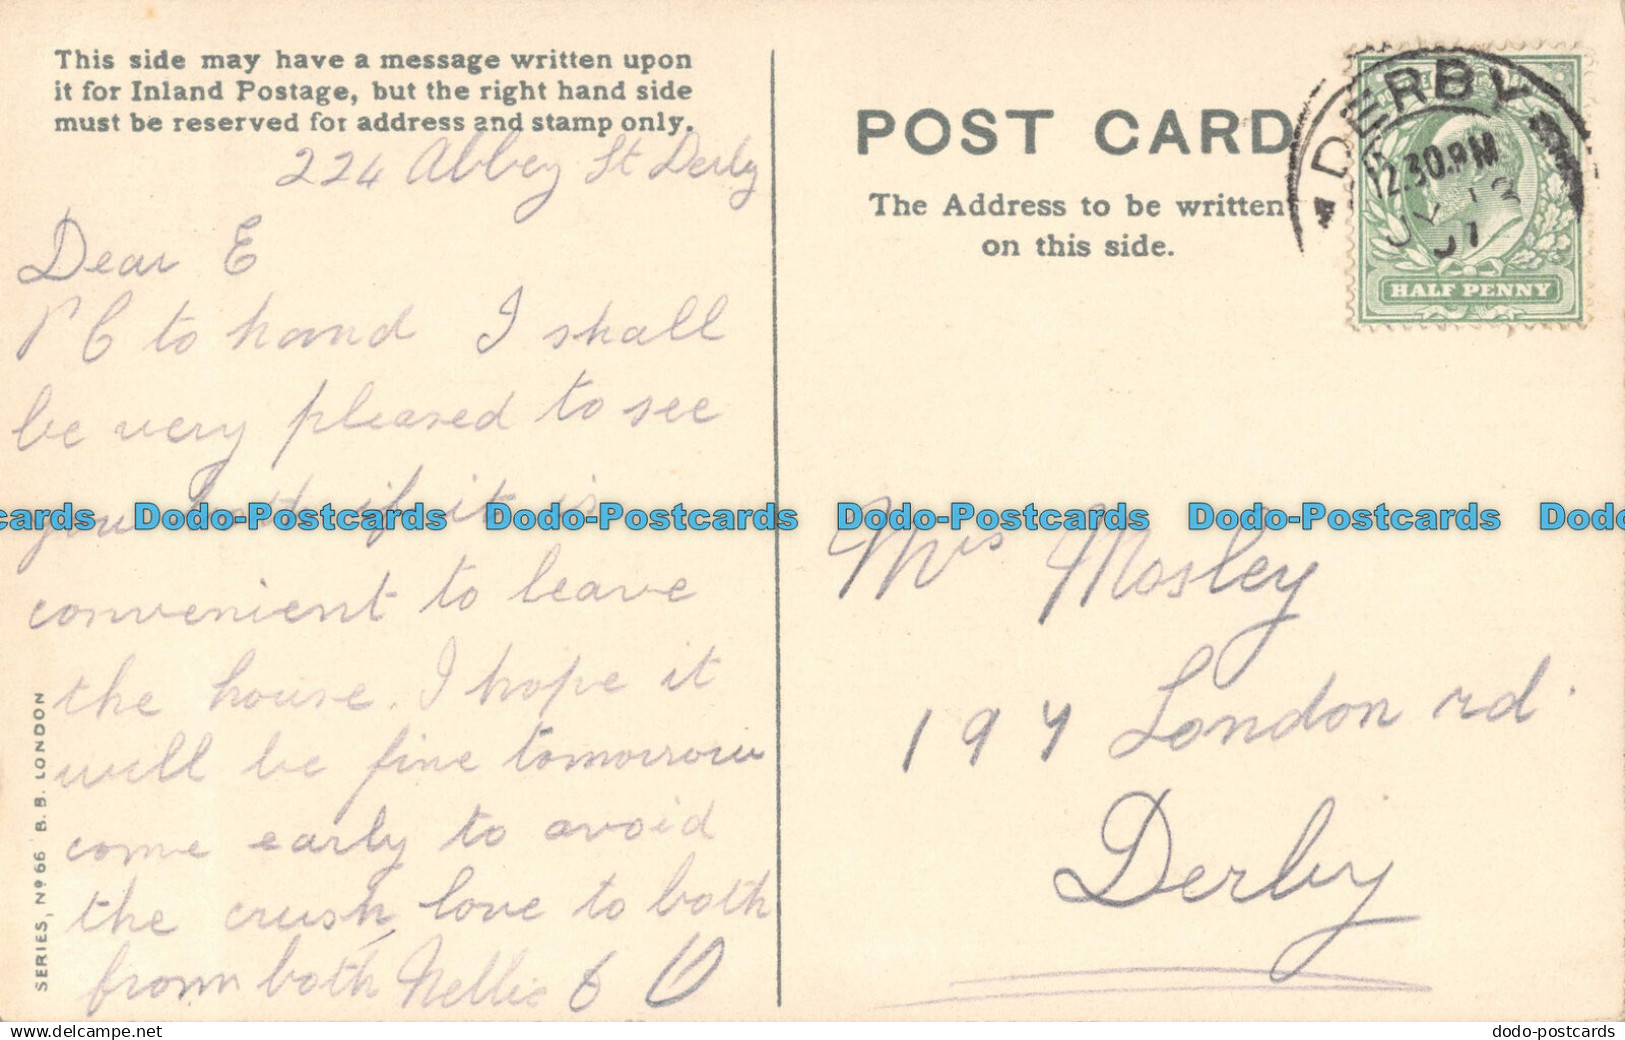 This side may have a message written upon
it for Inland Postage, but the right hand side
must be reserved for address and stamp only.
224 Abbey St Derby
Dear E
PC to hand I shall
be very pleased to see
you both if it is
convenient to leave
the house. I hope it
will be fine tomorrow
come early to avoid
the crush, love to both
from both Nellie
SERIES, No 66 B. B. LONDON
POST CARD
The Address to be written
on this side.
DERBY
12.30.PM
JY 13
07
HALF PENNY
Mrs Mosley
197 London rd.
Derby
cards Dodo-Postcards Dodo-Postcards Dodo-Postcards Dodo-Postcards Dodo
dodo-postcards.com
dodo-postcards